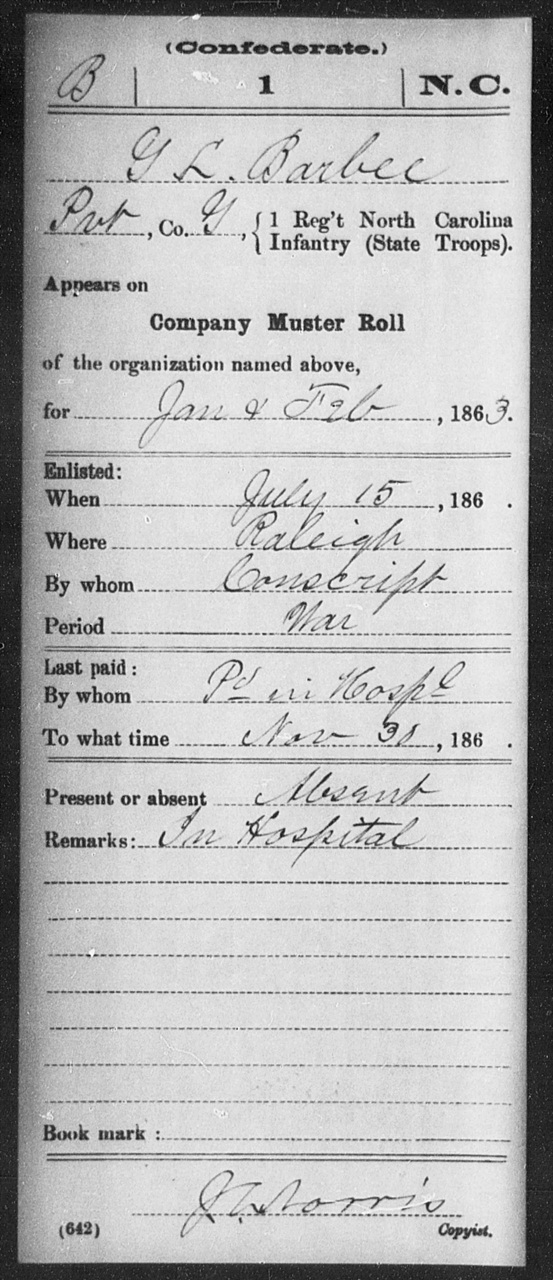 (Confederate.)
B | 1 | N.C.
G L. Barbee
Pvt, Co. G, { 1 Reg't North Carolina
Infantry (State Troops).
Appears on
Company Muster Roll
of the organization named above,
for Jan & Feb, 1863.
Enlisted:
When July 15, 186 .
Where Raleigh
By whom Conscript
Period War
Last paid:
By whom Pd in Hospl
To what time Nov 30, 186 .
Present or absent Absent
Remarks: In Hospital
Book mark:
Morris
(642) Copyist.